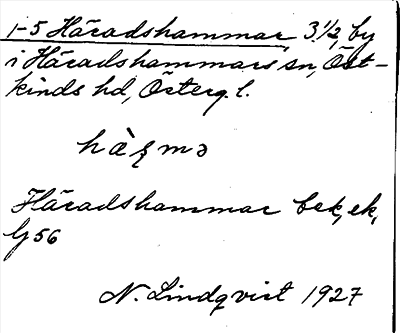 1-5 Häradshammar, 3 1/2, by
i Häradshammars sn, Öst-
kinds hd, Österg. l.
hàʂmə
Häradshammar bek, ek,
G 56
N. Lindqvist 1927